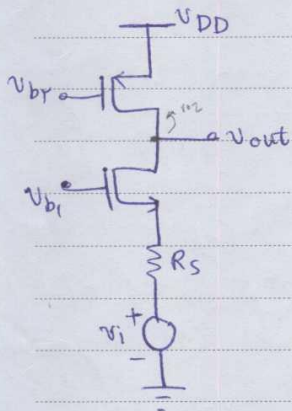 VDD
Vb2
r02
Vout
Vb1
RS
+
vi
-